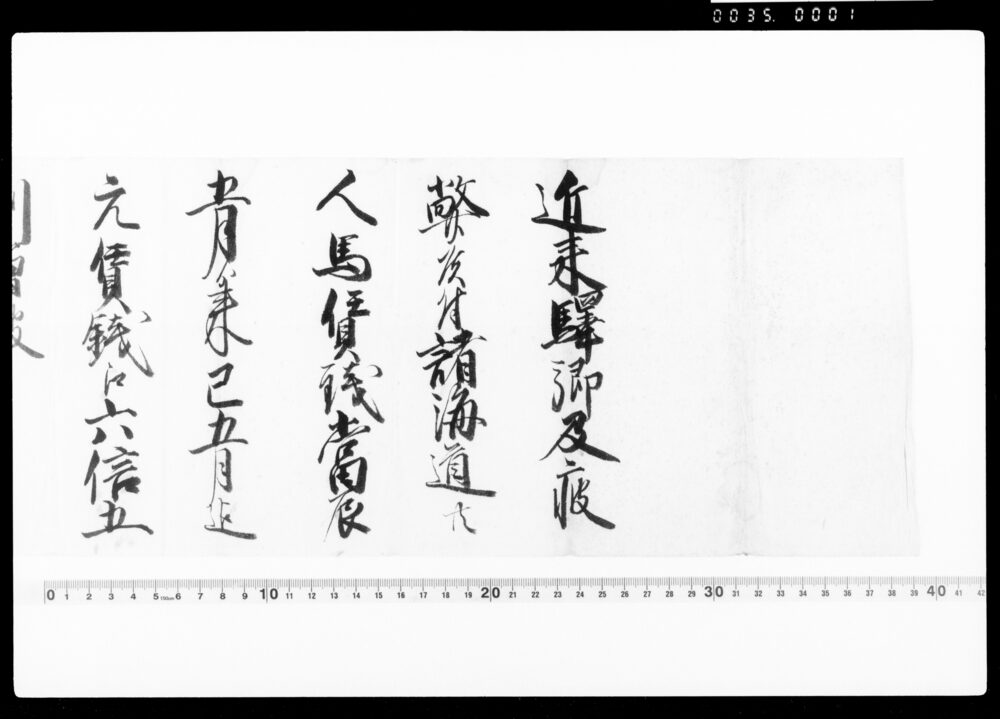 0035. 0001
近来驛郷及疲
弊候付諸海道共
人馬賃銭當辰
五月ゟ来巳五月迄
元賃銭江六倍五
割増被
0 1 2 3 4 5 6 7 8 9 10 11 12 13 14 15 16 17 18 19 20 21 22 23 24 25 26 27 28 29 30 31 32 33 34 35 36 37 38 39 40 41 42